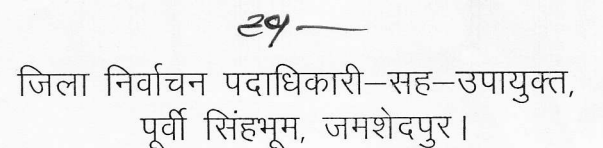 जिला निर्वाचन पदाधिकारी–सह–उपायुक्त,
पूर्वी सिंहभूम, जमशेदपुर।